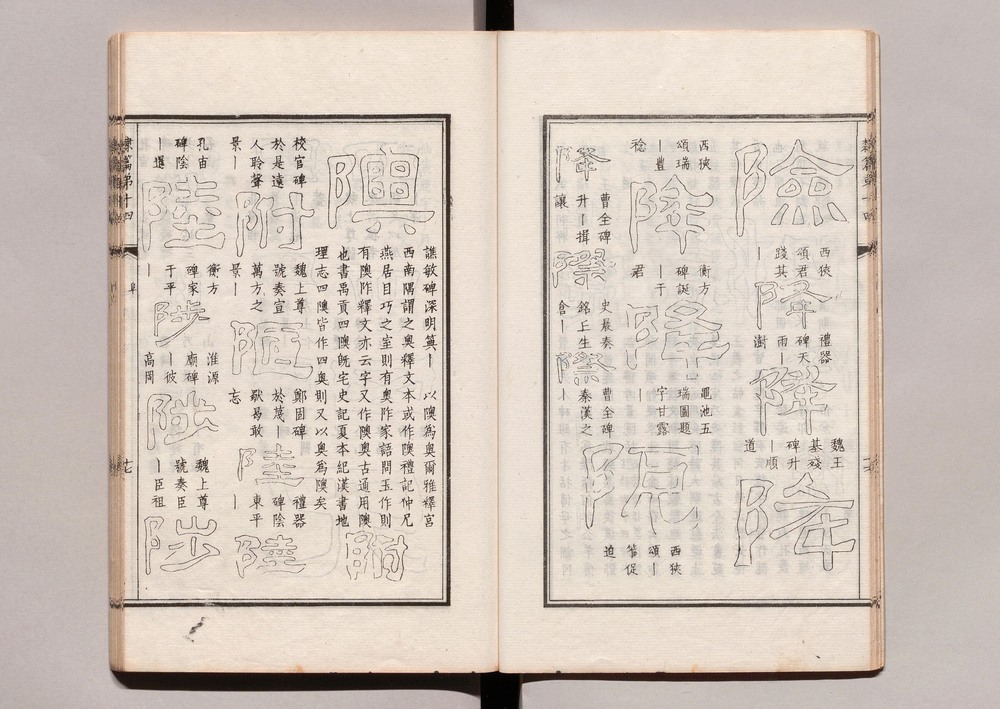 險
西狹
頌君
踐其
丨
降
禮器
碑天
雨丨
澍
降
魏王
基殘
碑升
丨順
道
降
西狹
頌瑞
丨豐
稔
降
衡方
碑誕
丨于
君
降
黽池五
瑞圖題
字甘露
丨
阨
西狹
頌丨
笮促
迫
降
曹全碑
升丨揖
讓
際
史晨奏
銘丘生
倉丨
際
曹全碑
秦漢之
丨
隩
譙敏碑深明箕丨 以隩爲奧爾雅釋宮
西南隅謂之奧釋文本或作隩禮記仲尼
燕居目巧之室則有奧阼家語問玉作則
有隩阼釋文亦云字又作隩奧古通用隩
也書禹貢四隩旣宅史記夏本紀漢書地
理志四隩皆作四奧則又以奧爲隩矣
附
校官碑
於是遠
人聆聲
景丨
附
魏上尊
號奏宣
萬方之
景丨
陋
鄭固碑
於蔑丨
歇易敢
忘
陸
禮器
碑陰
東平
丨
陸
孔宙
碑陰
丨暹
陸
衡方
碑家
于平
丨
陟
淮源
廟碑
丨彼
高岡
陟
魏上尊
號奏臣
丨臣祖
陟
隸篇弟十四
阜
十七